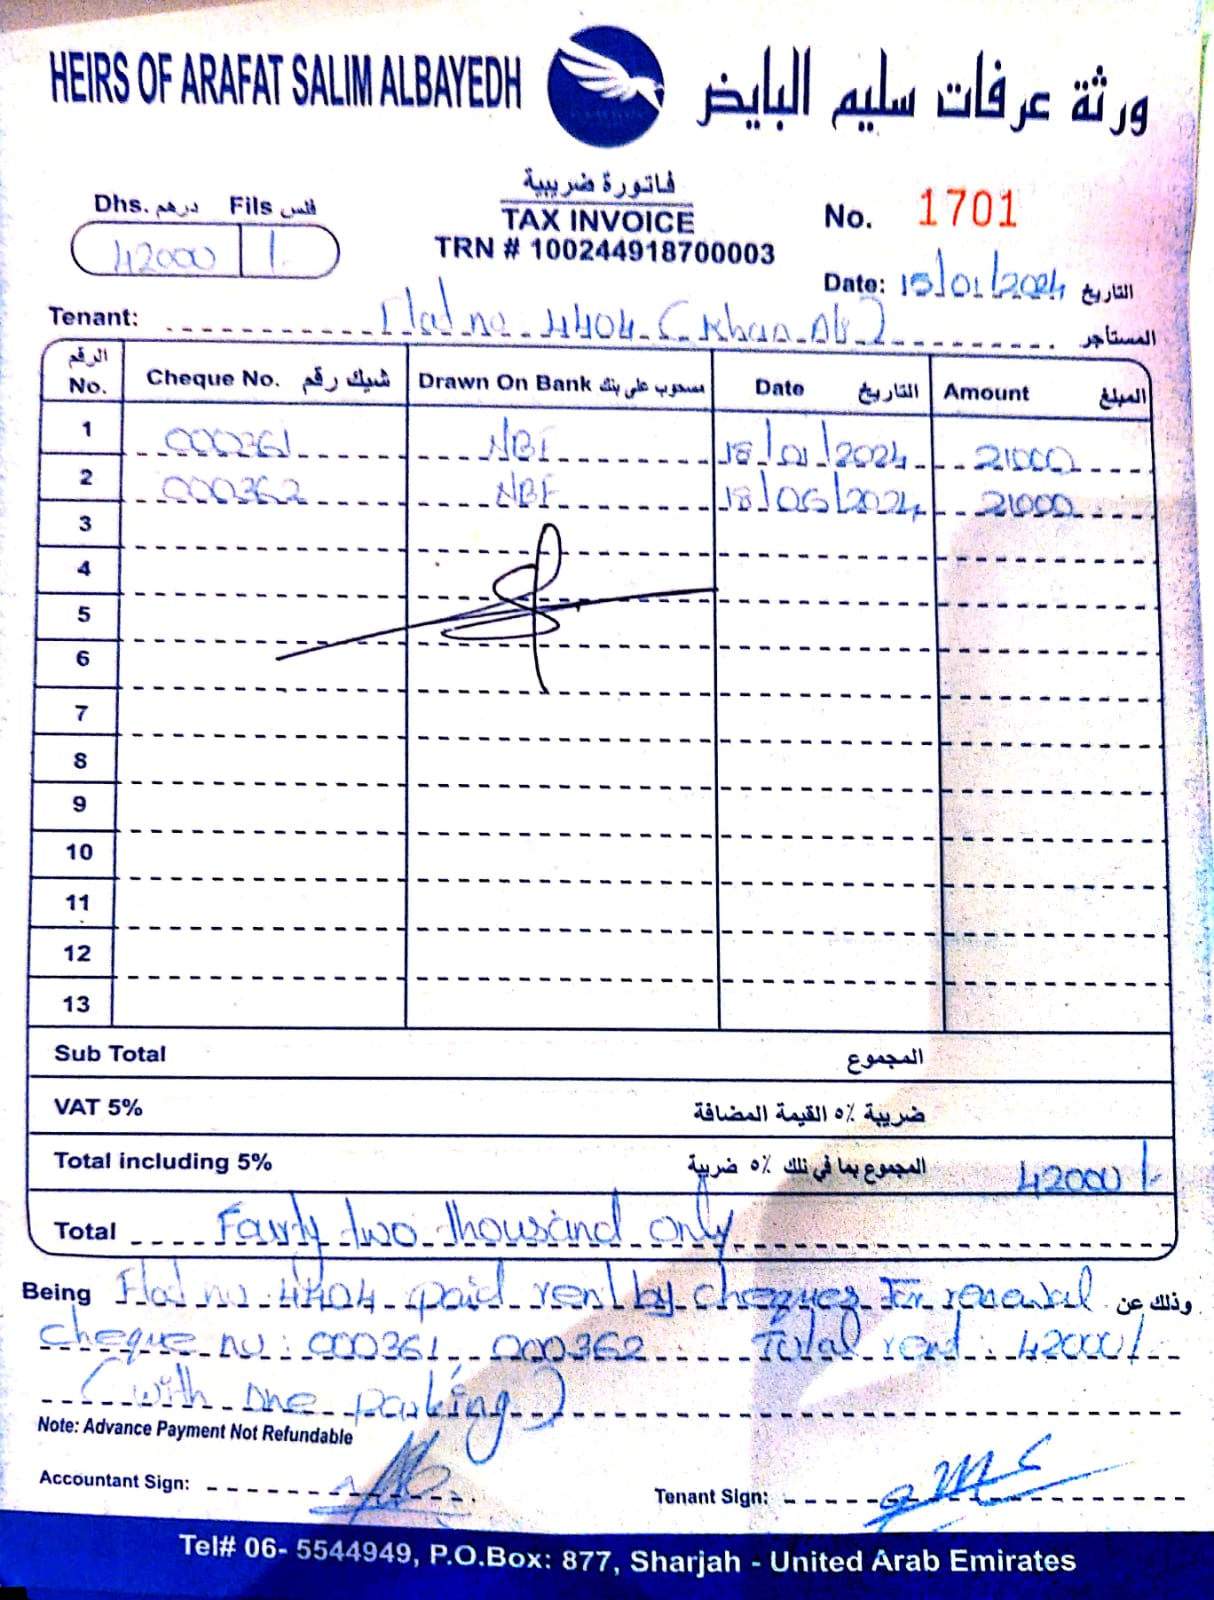 HEIRS OF ARAFAT SALIM ALBAYEDH ورثة عرفات سليم البايض
فاتورة ضريبية
TAX INVOICE
TRN # 100244918700003
Dhs. درهم Fils فلس
42000 /-
No. 1701
Date: 15/01/2024 التاريخ
Tenant: Flad no. 4404 ( Khan Ali ) المستأجر
الرقم No. Cheque No. شيك رقم Drawn On Bank مسحوب على بنك Date التاريخ Amount المبلغ
1 000361 NBF 18/01/2024 21000
2 000362 NBF 18/06/2024 21000
3
4
5
6
7
8
9
10
11
12
13
Sub Total المجموع
VAT 5% ضريبة ٥٪ القيمة المضافة
Total including 5% المجموع بما في ذلك ٥٪ ضريبة 42000/-
Total Fourty two thousand only
Being Flad no. 4404 paid rent by cheques For renewal وذلك عن
cheque no: 000361, 000362 Total rent: 42000/-
( with one parking )
Note: Advance Payment Not Refundable
Accountant Sign:
Tenant Sign:
Tel# 06- 5544949, P.O.Box: 877, Sharjah - United Arab Emirates